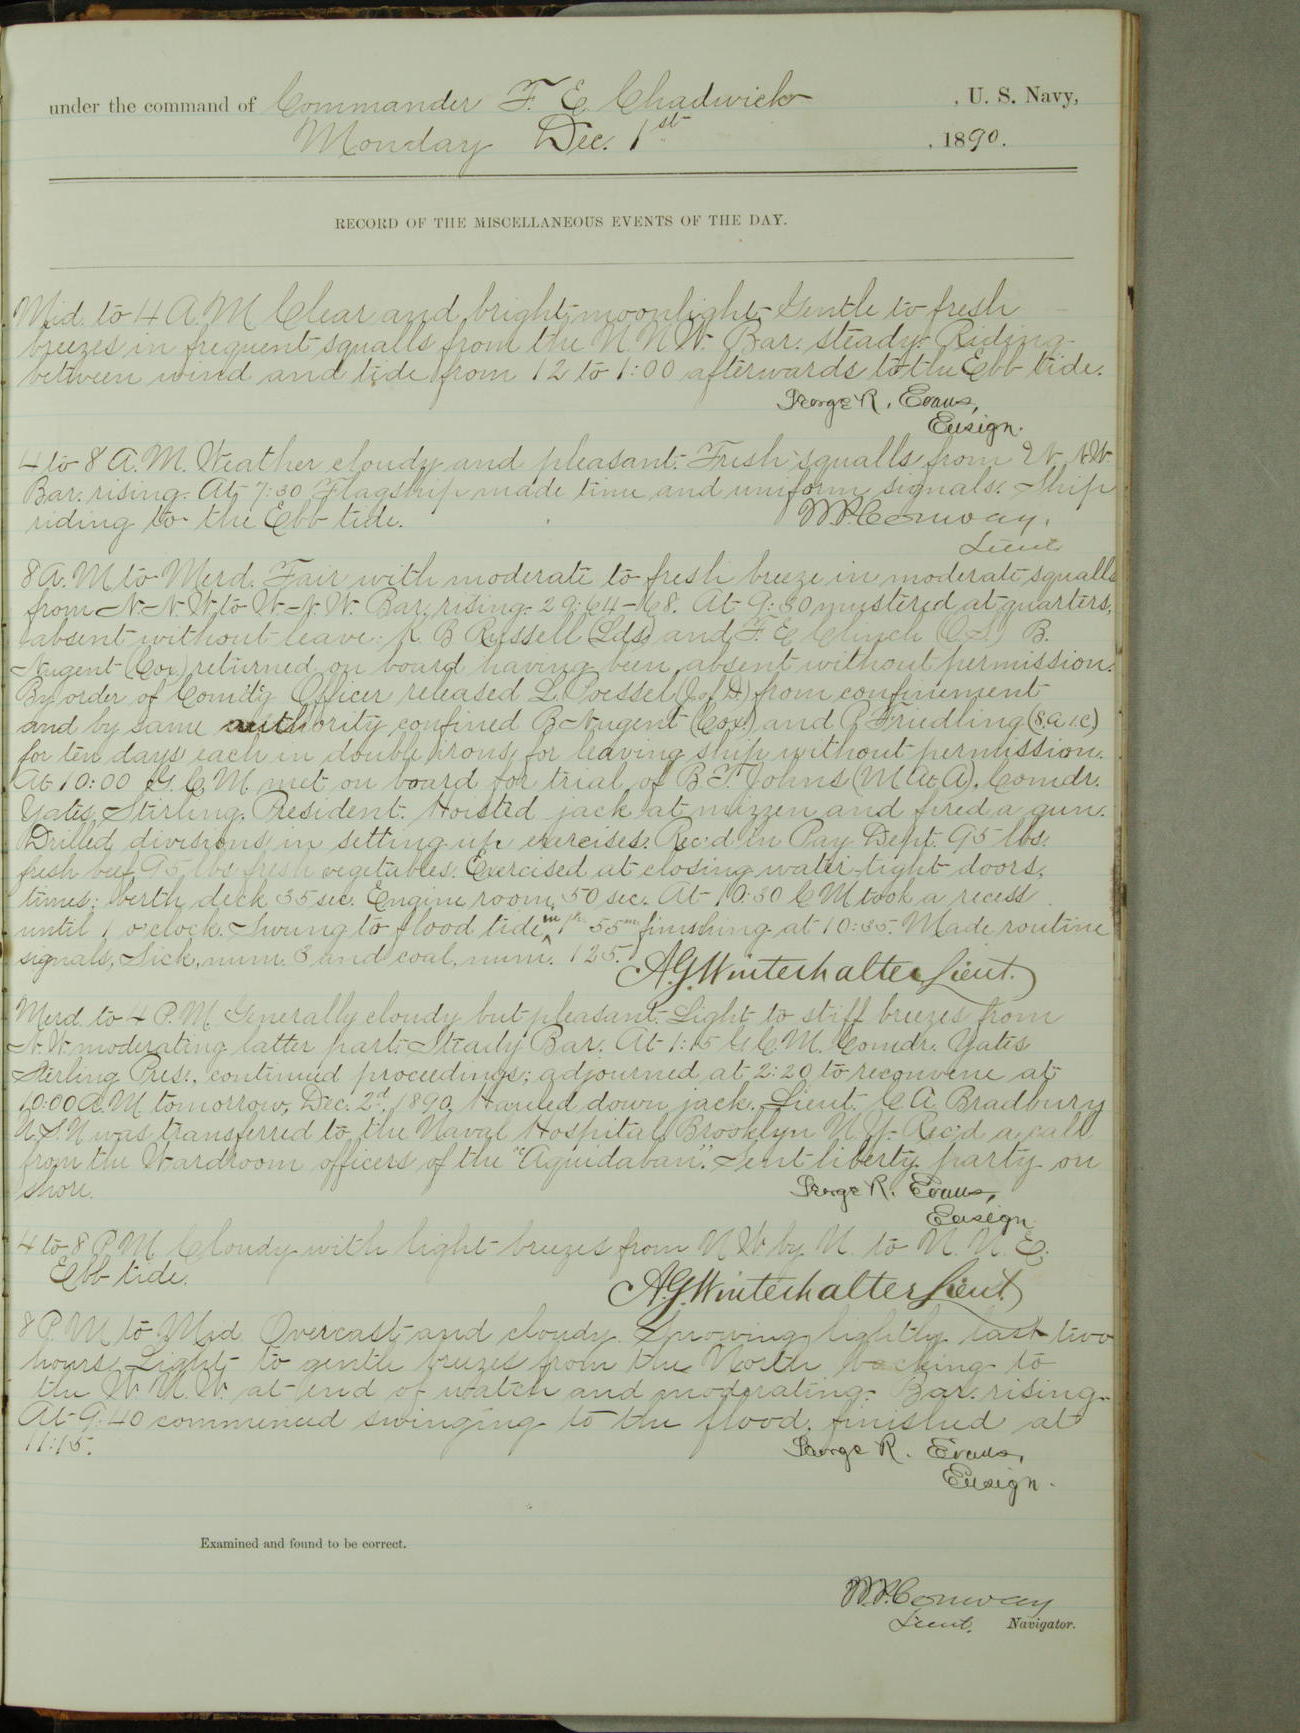 under the command of Commander F. E. Chadwick, U. S. Navy,
Monday Dec. 1st, 1890.
RECORD OF THE MISCELLANEOUS EVENTS OF THE DAY.
Mid. to 4 A.M. Clear and bright moonlight. Gentle to fresh
breezes in frequent squalls from the N.N.W. Bar. steady. Riding
between wind and tide from 12 to 1:00 afterwards to the Ebb tide.
George R. Evans,
Ensign.
4 to 8 A.M. Weather cloudy and pleasant. Fresh squalls from W.N.W.
Bar. rising. At 7:30 Flagship made time and uniform signals. Ship
riding to the Ebb tide.
W.P. Conway,
Lieut
8 A.M. to Merd. Fair with moderate to fresh breeze in moderate squalls
from N-N-W. to W-N-W. Bar. rising - 29:64-68. At 9:30 mustered at quarters,
absent without leave: R B Russell (Lds) and F. E. Clinch (O.S.) B.
Nugent (Cox.) returned on board having been absent without permission.
By order of Comd'g Officer released L. Poessel (J. of D) from confinement
and by same authority confined B. Nugent (Cox.) and Friedling (S.a.1.c)
for ten days each in double irons for leaving ship without permission.
At 10:00 G.C.M. met on board for trial of B. F. Johns (M.At.A). Comdr.
Yates Stirling, President. Hoisted jack at mizzen and fired a gun.
Drilled divisions in setting up exercises. Rec'd in Pay Dept. 95 lbs.
fresh beef 95 lbs fresh vegetables. Exercised at closing water-tight doors,
times; berth deck 35 sec. Engine room, 50 sec. At 10:30 C M took a recess
until 1 o'clock. Swung to flood tide in 1h 55m finishing at 10:35. Made routine
signals, Sick, num. 3 and coal, num. 125.
A.G. Winterhalter Lieut.
Merd. to 4 P.M. Generally cloudy but pleasant. Light to stiff breezes from
N.W. moderating latter part. Steady Bar. At 1:15 G.C.M. Comdr. Yates
Sterling Pres., continued proceedings; adjourned at 2:20 to reconvene at
10:00 A.M tomorrow, Dec. 2d, 1890. Hauled down jack. Lieut. C. A. Bradbury
U.S.N was transferred to the Naval Hospital Brooklyn N.Y. Rec'd a call
from the Wardroom officers of the "Aquidaban". Sent liberty party on
shore.
George R. Evans,
Ensign
4 to 8 P.M. Cloudy with light breezes from N.W. by N. to N. N. E.
Ebb tide.
A.G. Winterhalter Lieut.
8 P.M. to Mid. Overcast and cloudy. Snowing lightly last two
hours. Light to gentle breezes from the North backing to
the W.N.W. at end of watch and moderating. Bar. rising.
At 9:40 commenced swinging to the flood. finished at
11:15.
George R. Evans,
Ensign.
Examined and found to be correct.
W.P. Conway
Lieut. Navigator.